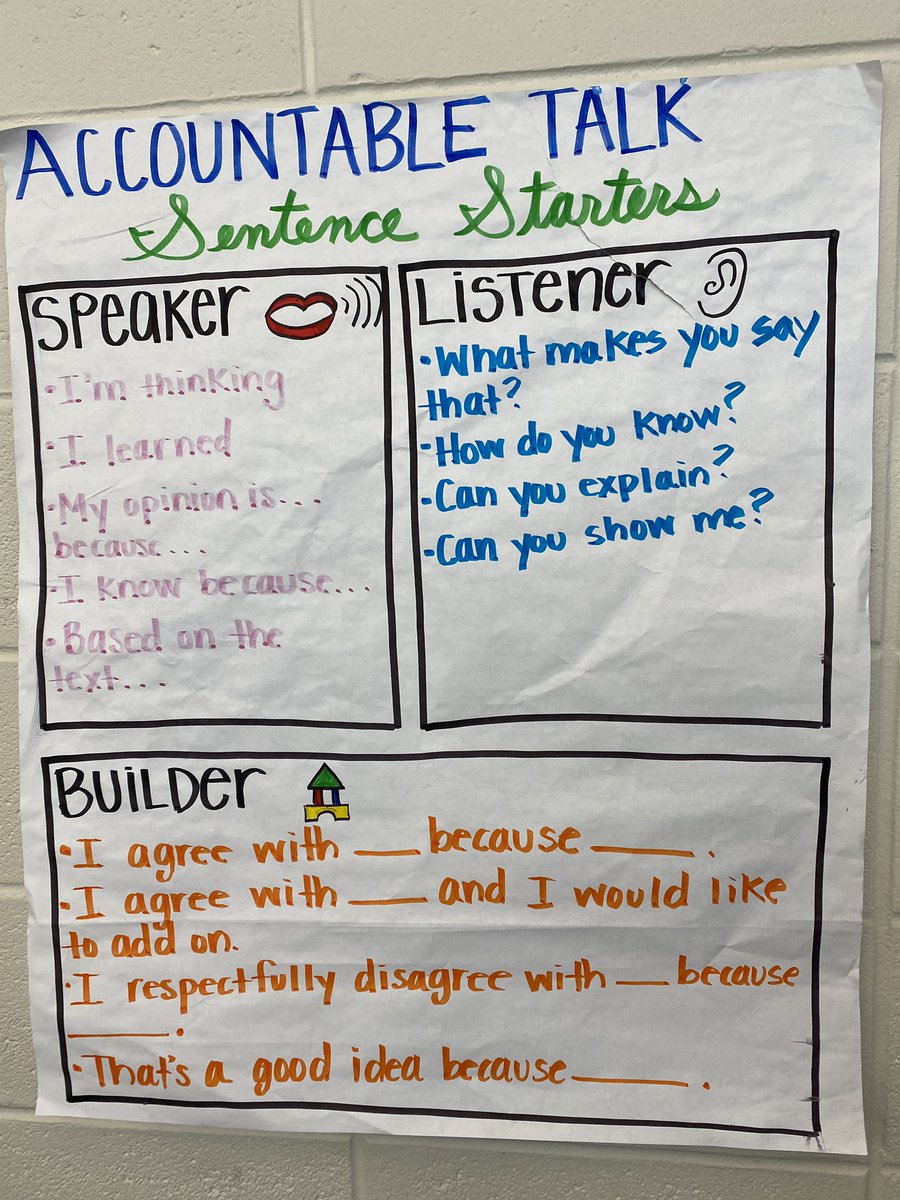 ACCOUNTABLE TALK
Sentence Starters
Speaker
• I'm thinking
• I learned
• My opinion is...
because...
• I know because...
• Based on the
text...
Listener
• What makes you say
that?
• How do you know?
• Can you explain?
• Can you show me?
Builder
• I agree with ___ because ____.
• I agree with ___ and I would like
to add on.
• I respectfully disagree with __ because
____.
• That's a good idea because_____.